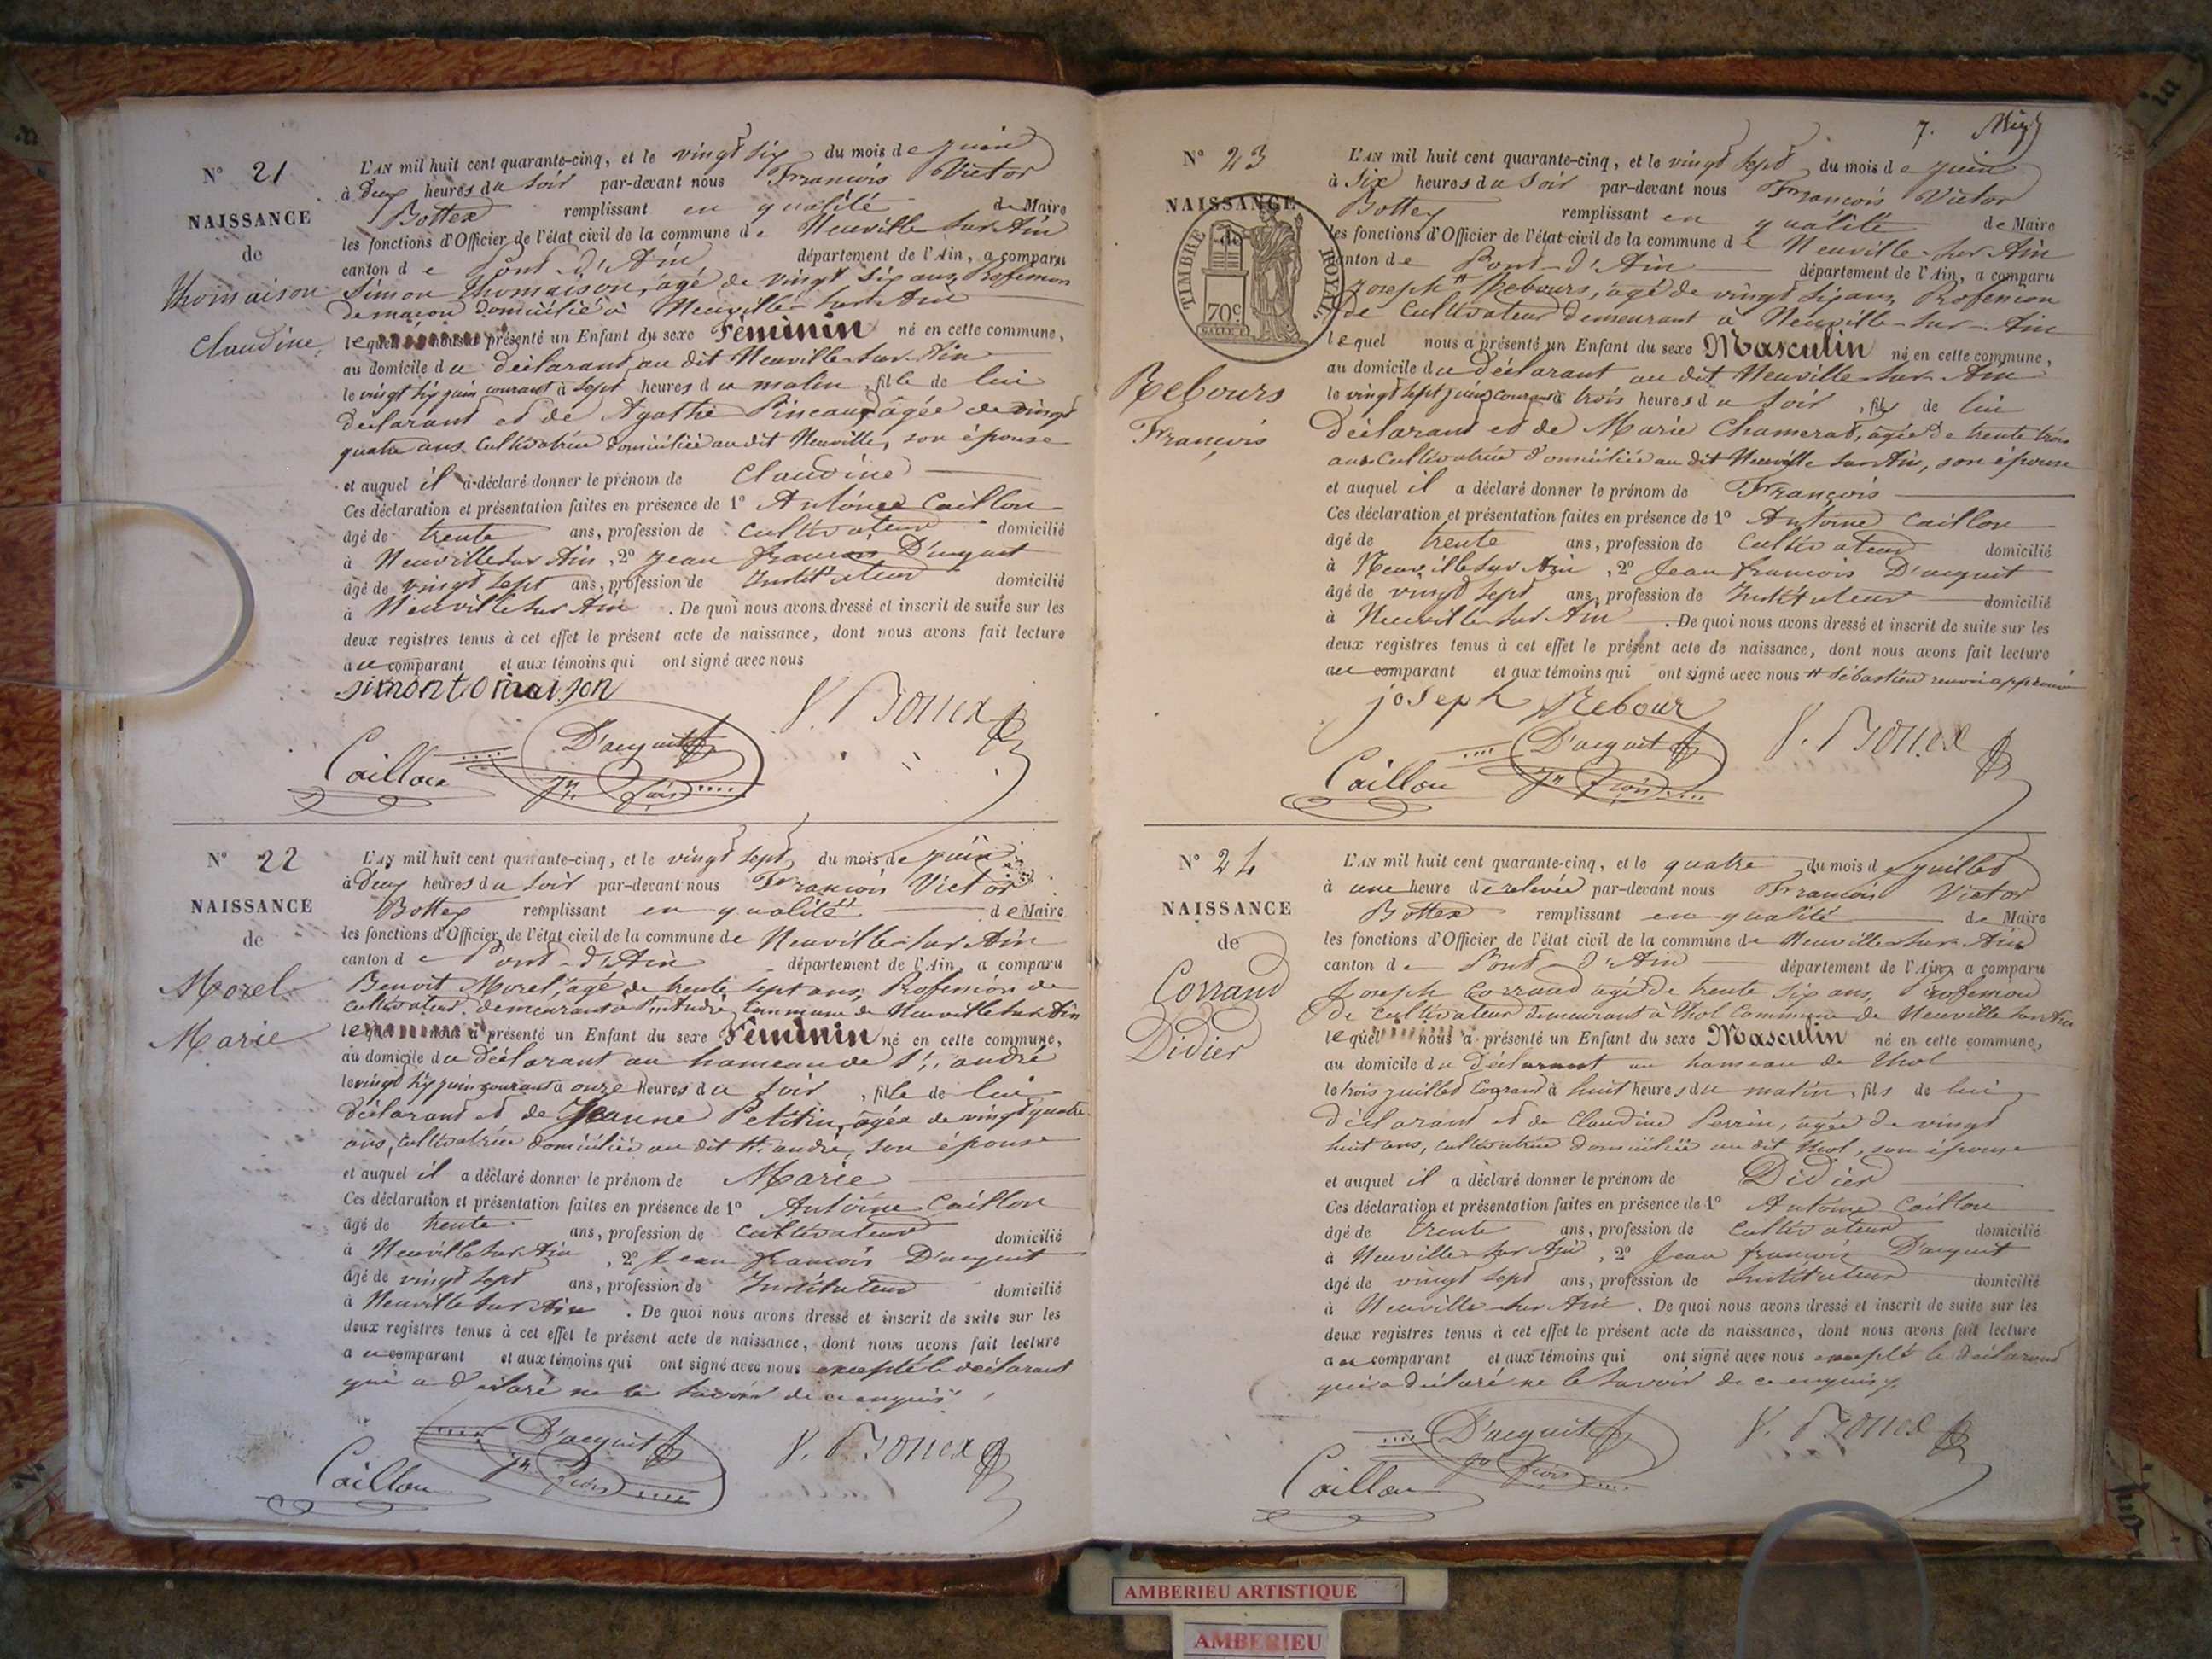 N° 21
NAISSANCE
de
Thomaison
Claudine
L'AN mil huit cent quarante-cinq, et le vingt six du mois de juin
à Deux heures du soir par-devant nous François Victor
Bottex remplissant en qualité de Maire
les fonctions d'Officier de l'état civil de la commune de Neuville sur Ain
canton de Pont-d'Ain département de l'Ain, a comparu
Simon Thomaison, âgé de vingt six ans, Profession
de maçon domicilié à Neuville sur Ain
lequel nous a présenté un Enfant du sexe Féminin né en cette commune,
au domicile du déclarant au dit Neuville sur Ain
le vingt six juin courant à sept heures du matin, fille de lui
déclarant et de Agathe Pineaux, âgée de vingt
quatre ans cultivatrice domiciliée au dit Neuville, son épouse
et auquel il a déclaré donner le prénom de Claudine
Ces déclaration et présentation faites en présence de 1° Antoine Caillon
âgé de trente ans, profession de cultivateur domicilié
à Neuville sur Ain, 2° Jean françois D'acquit
âgé de vingt sept ans, profession de Instituteur domicilié
à Neuville sur Ain. De quoi nous avons dressé et inscrit de suite sur les
deux registres tenus à cet effet le présent acte de naissance, dont nous avons fait lecture
au comparant et aux témoins qui ont signé avec nous
simon tomaison
V. Bottex
D'acquit
Caillon
Jn fçois
N° 22
NAISSANCE
de
Morel
Marie
L'AN mil huit cent quarante-cinq, et le vingt sept du mois de juin
à Deux heures du soir par-devant nous François Victor
Bottex remplissant en qualité de Maire
les fonctions d'Officier de l'état civil de la commune de Neuville sur Ain
canton de Pont-d'Ain département de l'Ain, a comparu
Benoit Morel, âgé de trente sept ans, Profession de
cultivateur demeurant à St. André, Commune de Neuville sur Ain
lequel nous a présenté un Enfant du sexe Féminin né en cette commune,
au domicile du déclarant au hameau de St. andré
le vingt six juin courant à onze heures du soir, fille de lui
déclarant et de Jeanne Petitin, âgée de vingt quatre
ans, cultivatrice domiciliée au dit St. andré, son épouse
et auquel il a déclaré donner le prénom de Marie
Ces déclaration et présentation faites en présence de 1° Antoine Caillon
âgé de trente ans, profession de cultivateur domicilié
à Neuville sur Ain, 2° Jean françois D'acquit
âgé de vingt sept ans, profession de Instituteur domicilié
à Neuville sur Ain. De quoi nous avons dressé et inscrit de suite sur les
deux registres tenus à cet effet le présent acte de naissance, dont nous avons fait lecture
au comparant et aux témoins qui ont signé avec nous excepté le déclarant
qui a déclaré ne le savoir de ce enquis
D'acquit
V. Bottex
Caillon
Jn fçois
7.
N° 23
NAISSANCE
de
TIMBRE ROYAL
70c
Rebours
François
L'AN mil huit cent quarante-cinq, et le vingt sept du mois de juin
à six heures du soir par-devant nous François Victor
Bottex remplissant en qualité de Maire
les fonctions d'Officier de l'état civil de la commune de Neuville sur Ain
canton de Pont-d'Ain département de l'Ain, a comparu
Joseph # Rebours, âgé de vingt six ans, Profession
de Cultivateur demeurant à Neuville-sur-Ain
lequel nous a présenté un Enfant du sexe Masculin né en cette commune,
au domicile du déclarant au dit Neuville sur Ain
le vingt sept juin courant à trois heures du soir, fils de lui
déclarant et de Marie Chamerat, âgée de trente trois
ans cultivatrice domiciliée au dit Neuville sur Ain, son épouse
et auquel il a déclaré donner le prénom de François
Ces déclaration et présentation faites en présence de 1° Antoine Caillon
âgé de trente ans, profession de Cultivateur domicilié
à Neuville sur Ain, 2° Jean francois D'acquit
âgé de vingt sept ans, profession de Instituteur domicilié
à Neuville sur Ain. De quoi nous avons dressé et inscrit de suite sur les
deux registres tenus à cet effet le présent acte de naissance, dont nous avons fait lecture
au comparant et aux témoins qui ont signé avec nous # Sébastien renvoi approuvé
joseph Rebour
D'acquit
V. Bottex
Caillon
Jn fçois
N° 24
NAISSANCE
de
Corraud
Didier
L'AN mil huit cent quarante-cinq, et le quatre du mois de juillet
à une heure de relevée par-devant nous François Victor
Bottex remplissant en qualité de Maire
les fonctions d'Officier de l'état civil de la commune de Neuville sur Ain
canton de Pont-d'Ain département de l'Ain, a comparu
Joseph Corraud âgé de trente six ans, Profession
de cultivateur demeurant à Thol Commune de Neuville sur Ain
lequel nous a présenté un Enfant du sexe Masculin né en cette commune,
au domicile du déclarant au hameau de Thol
le trois juillet courant à huit heures du matin, fils de lui
déclarant et de Claudine Perrin, âgée de vingt
huit ans, cultivatrice domiciliée au dit Thol, son épouse
et auquel il a déclaré donner le prénom de Didier
Ces déclaration et présentation faites en présence de 1° Antoine Caillon
âgé de trente ans, profession de cultivateur domicilié
à Neuville sur Ain, 2° Jean françois D'acquit
âgé de vingt sept ans, profession de Instituteur domicilié
à Neuville sur Ain. De quoi nous avons dressé et inscrit de suite sur les
deux registres tenus à cet effet le présent acte de naissance, dont nous avons fait lecture
au comparant et aux témoins qui ont signé avec nous excepté le déclarant
qui a déclaré ne le savoir de ce enquis
D'acquit
V. Bottex
Jn fçois
Caillon
AMBERIEU ARTISTIQUE
AMBERIEU